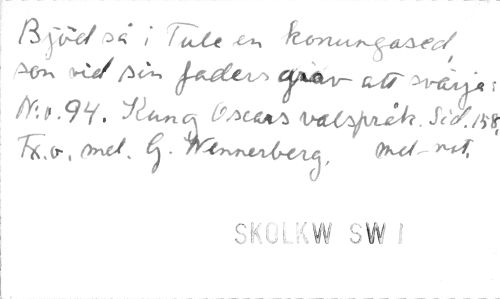 Bjöd så i Tule en konungased,
son vid sin faders grav att svärja:
N:o. 94. Kung Oscars valspråk. Sid. 158,
Tx. o. mel. G. Wennerberg. mel-not.
SKOLKW SW I